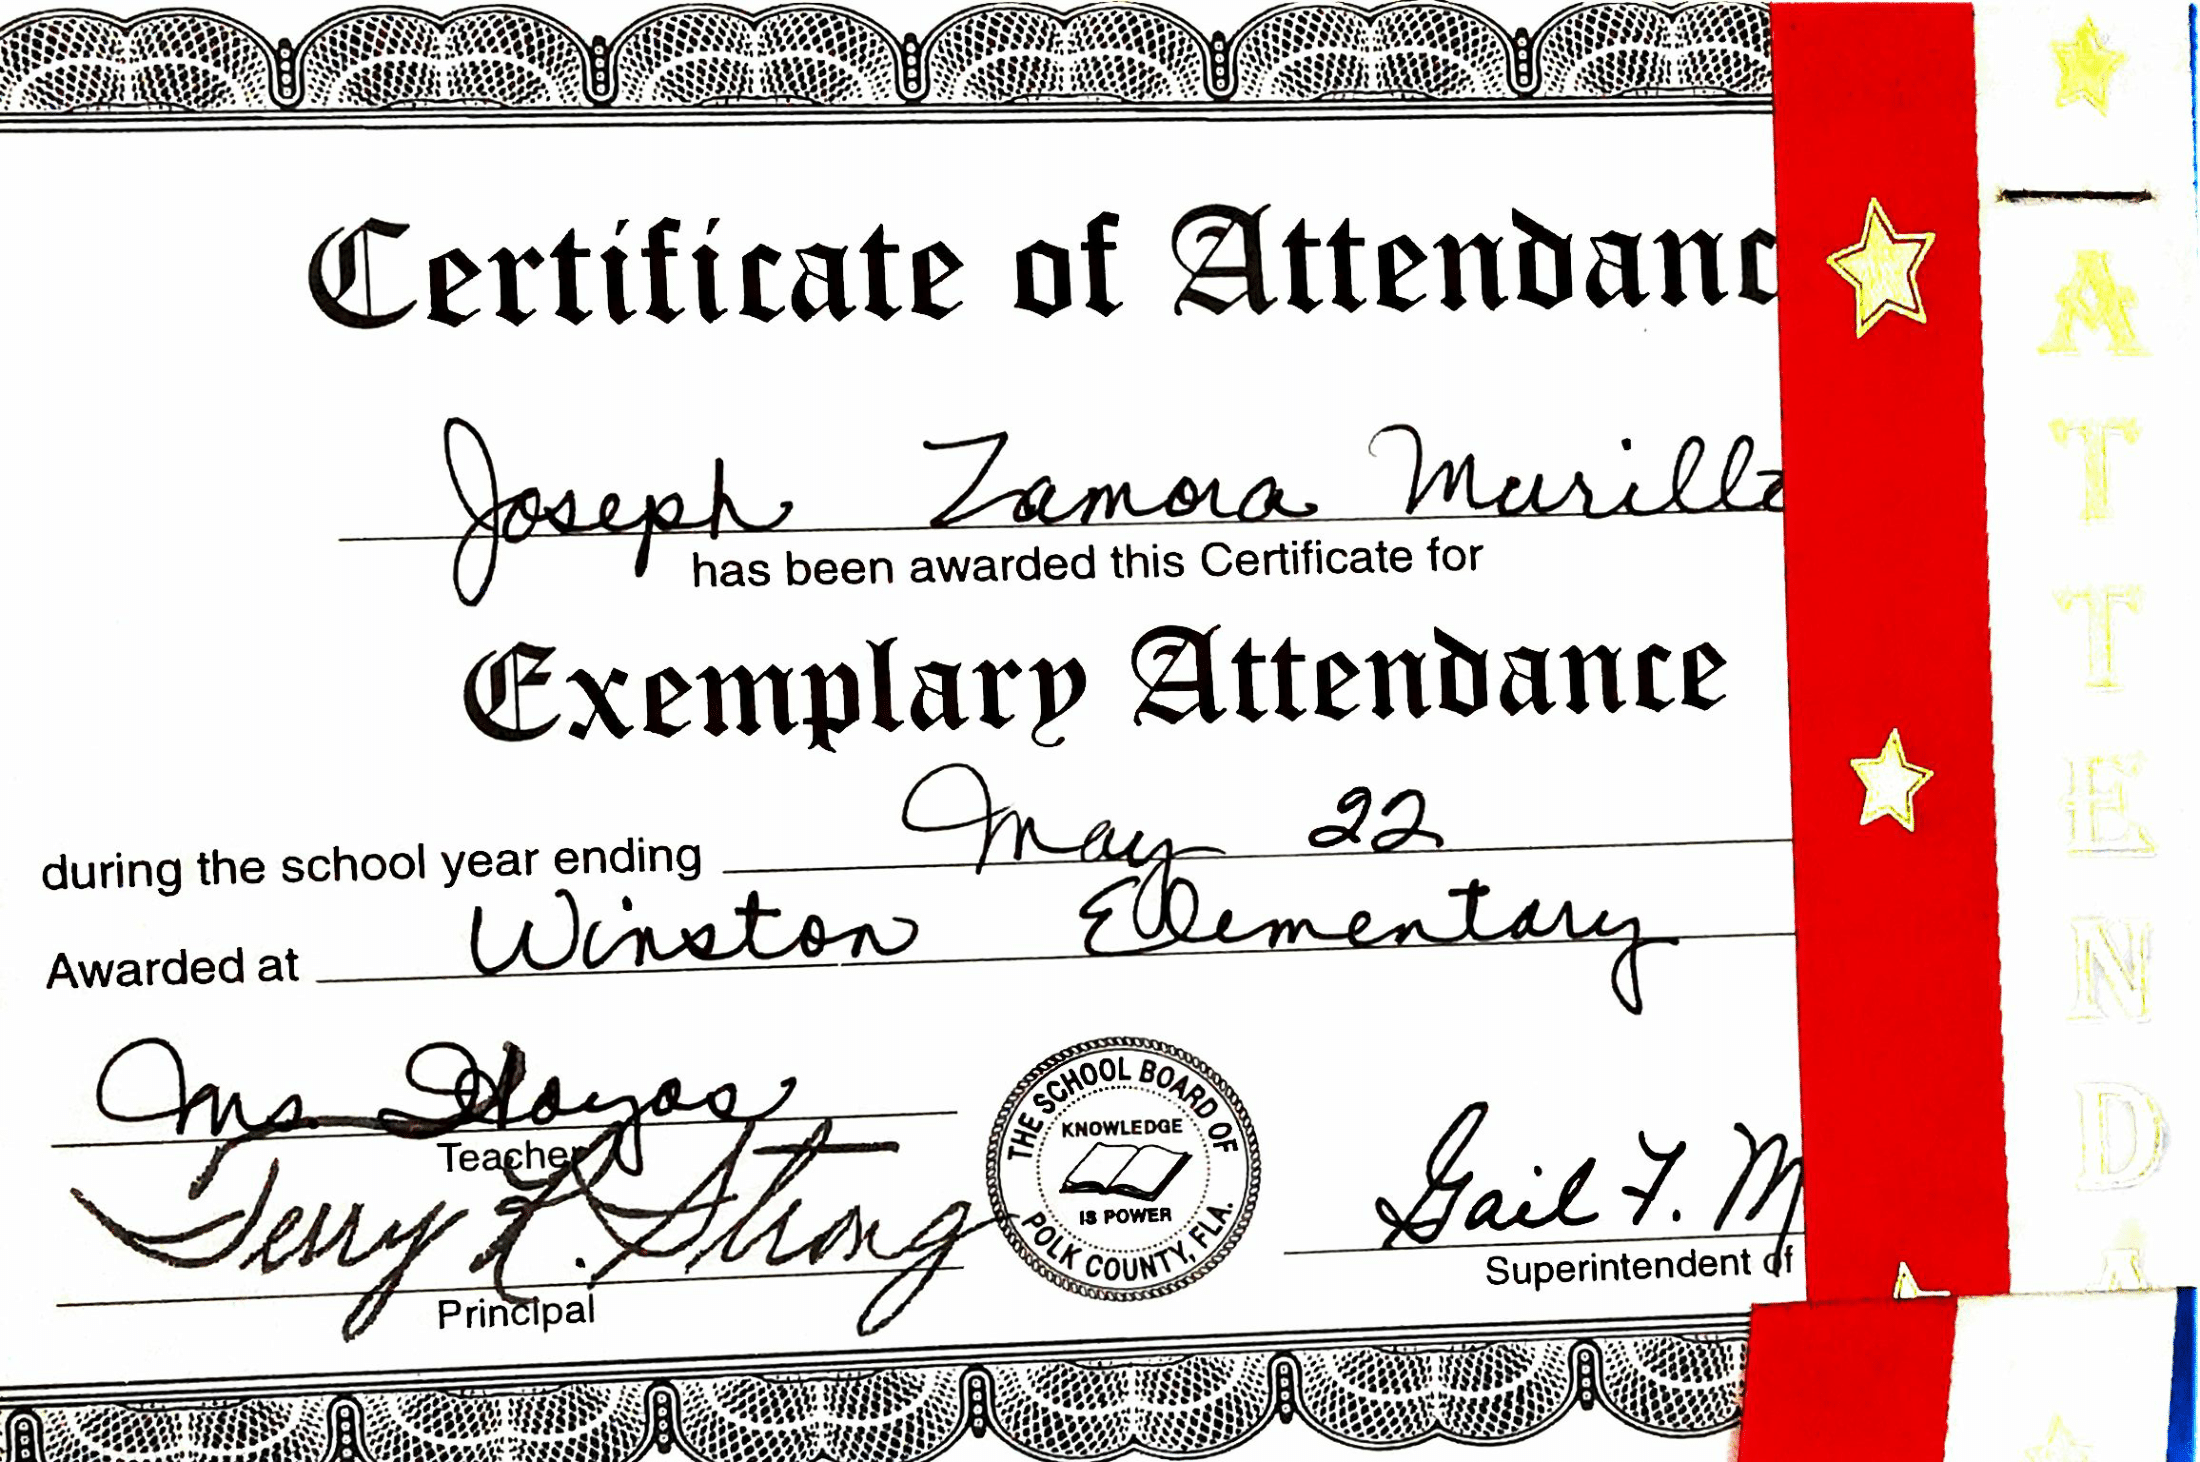 Certificate of Attendanc
Joseph Zamora Murillo
has been awarded this Certificate for
Exemplary Attendance
during the school year ending May 22
Awarded at Winston Elementary
Ms. Hoyos
Teacher
Terry L. Strong
Principal
THE SCHOOL BOARD OF
KNOWLEDGE
IS POWER
POLK COUNTY, FLA.
Gail F. M
Superintendent of
ATTENDA